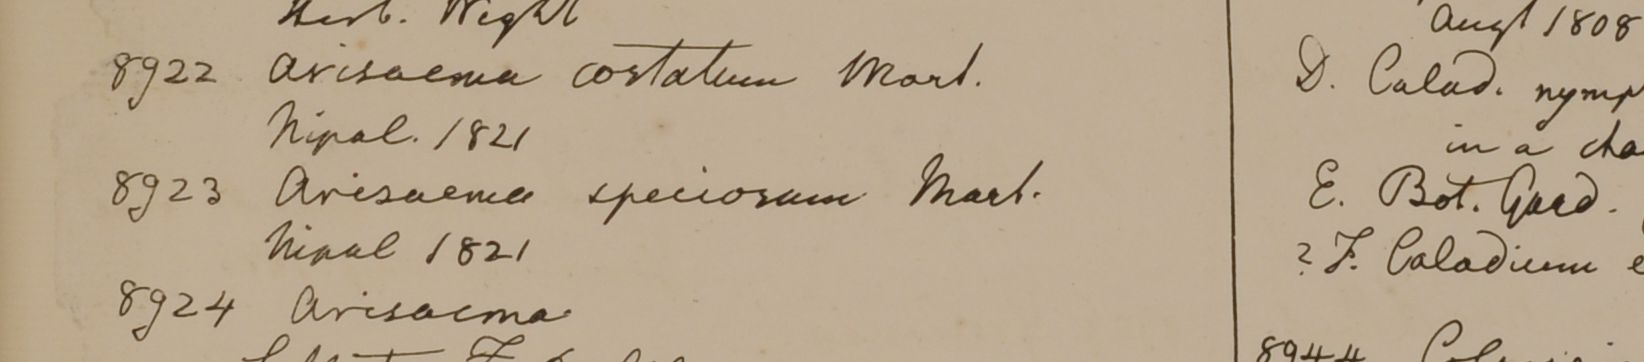 Herb. Wight
8922 Arisaema costatum Mart.
Nipal. 1821
8923 Arisaema speciosum Mart.
Nipal 1821
8924 Arisaema
Augt 1808
D. Calad. nymp
in a cha
E. Bot. Gard.
? F. Caladium e
8944